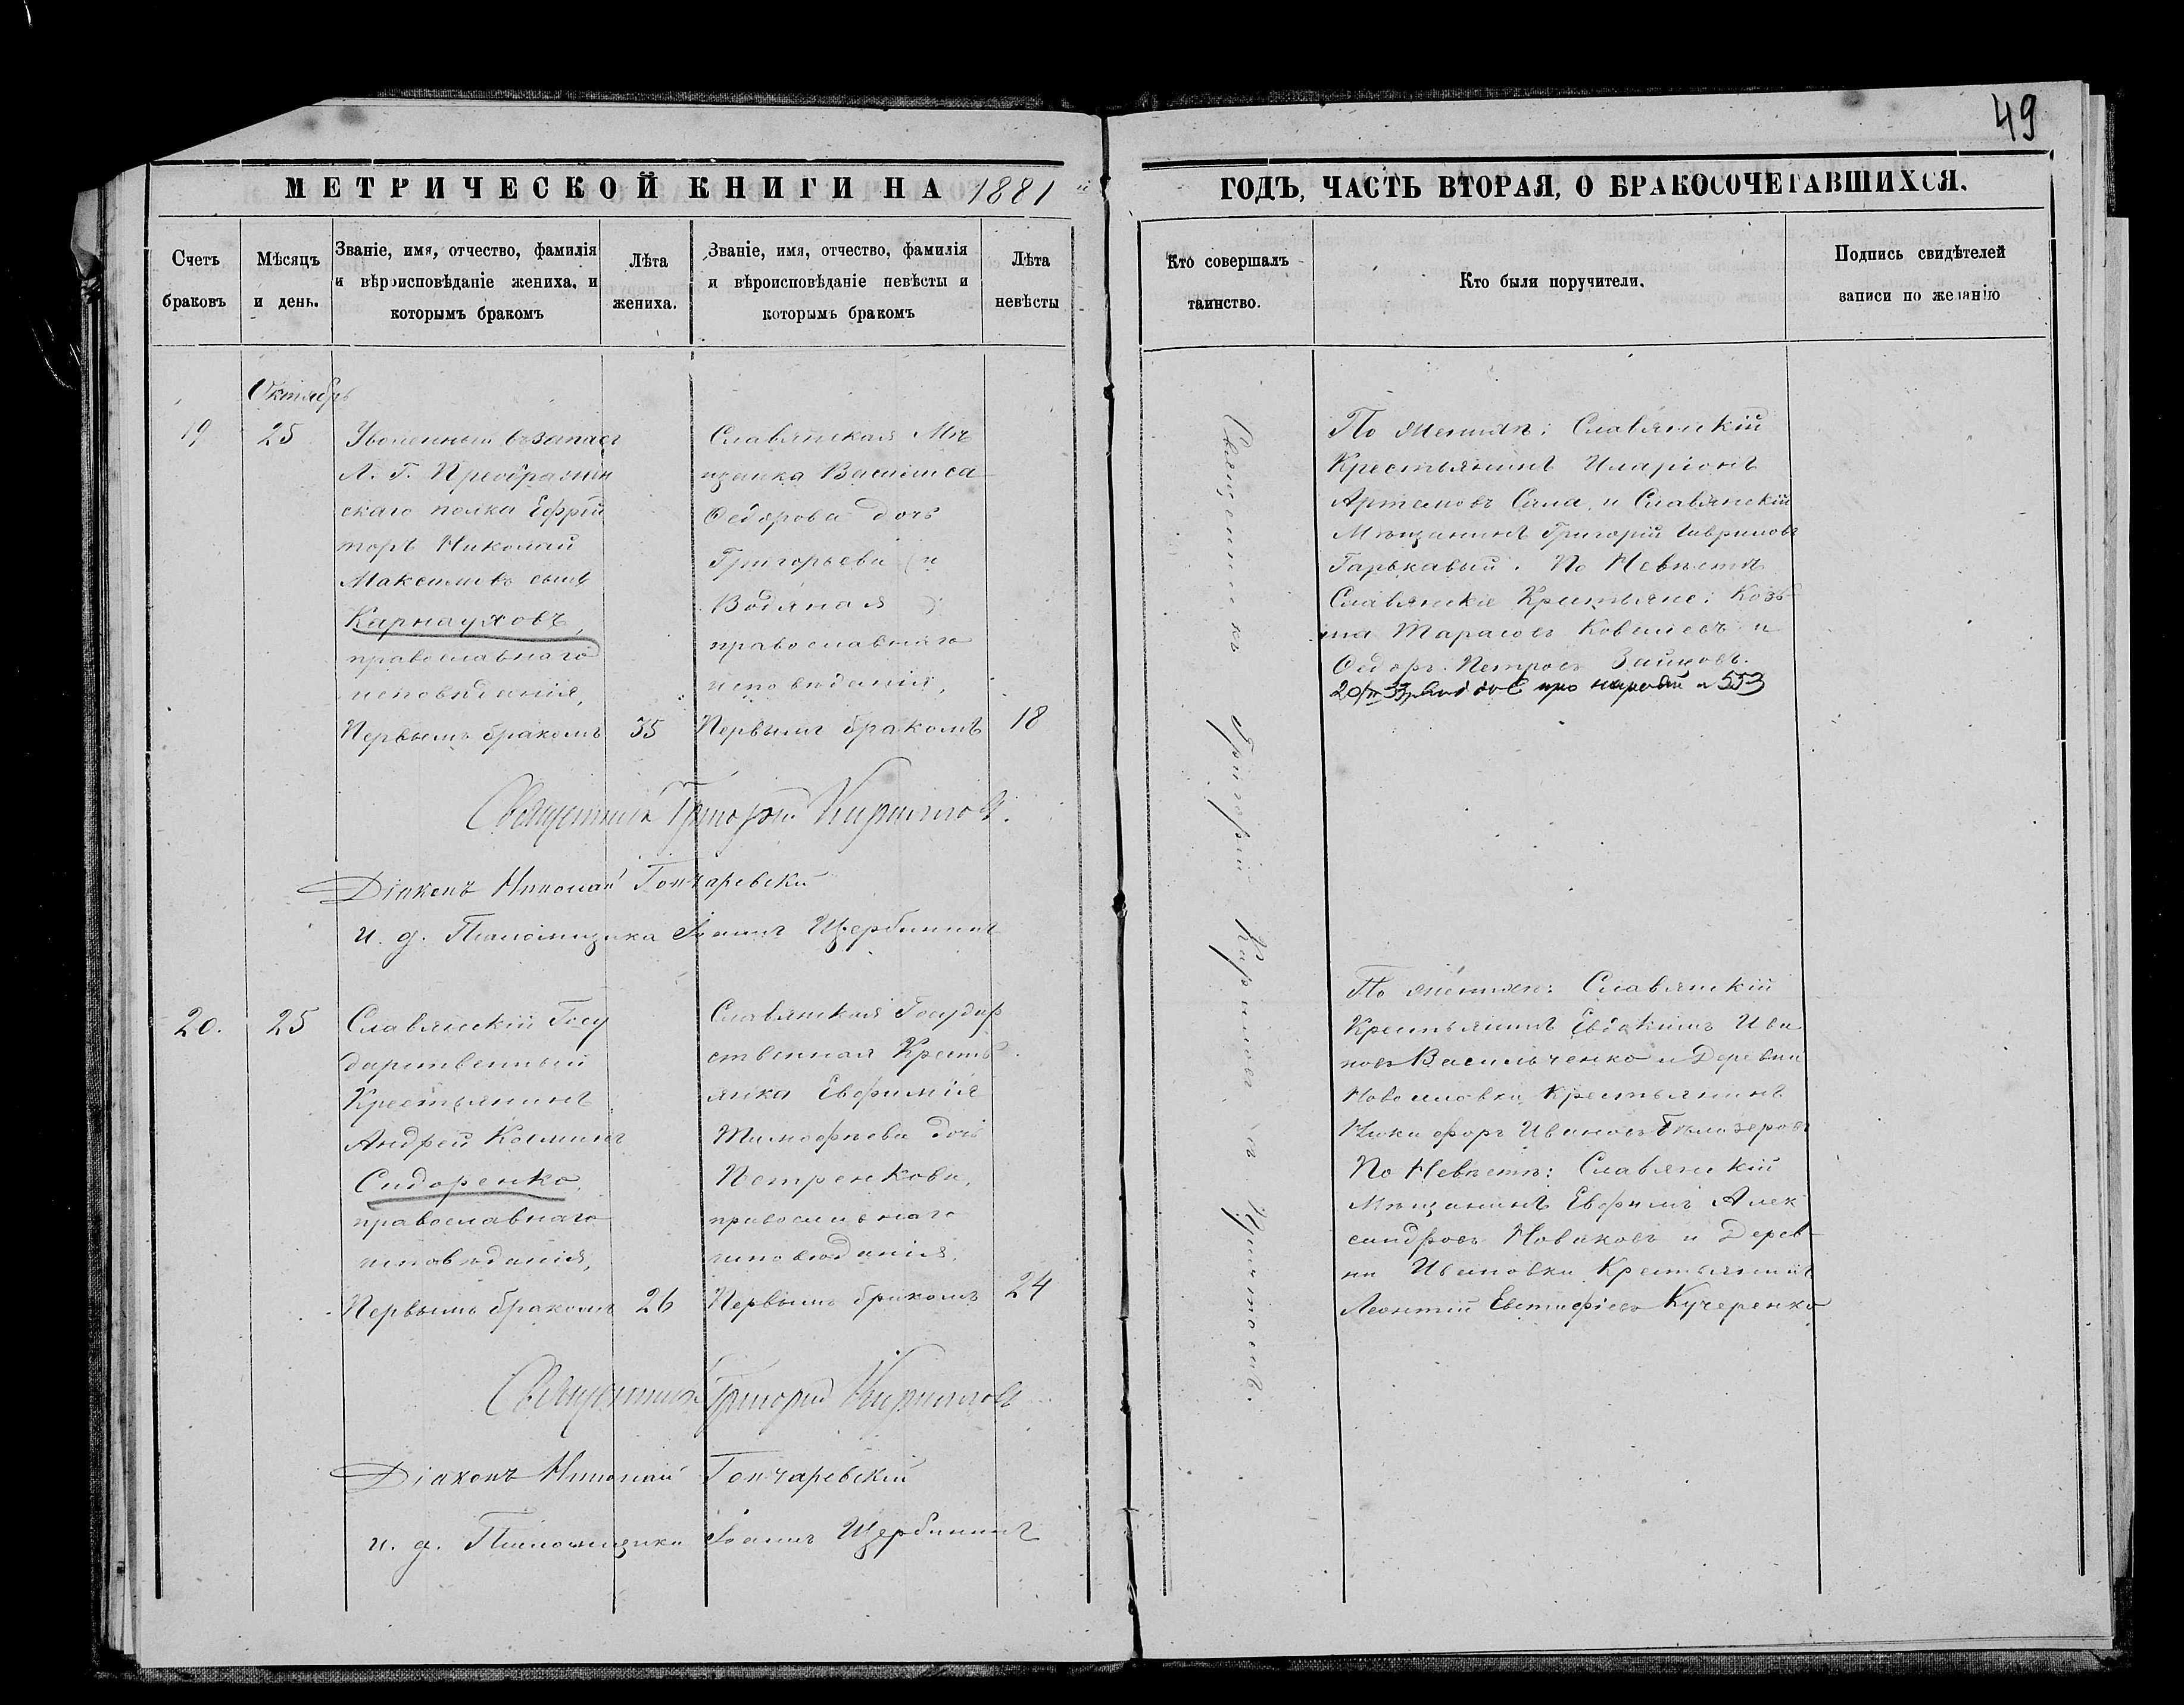 49
МЕТРИЧЕСКОЙ КНИГИ НА 1881
ГОДЪ, ЧАСТЬ ВТОРАЯ, О БРАКОСОЧЕТАВШИХСЯ.
Счетъ браковъ
Мѣсяцъ и день.
Званіе, имя, отчество, фамилія
и вѣроисповѣданіе жениха, и
которымъ бракомъ
Лѣта жениха.
Званіе, имя, отчество, фамилія
и вѣроисповѣданіе невѣсты и
которымъ бракомъ
Лѣта невѣсты
Кто совершалъ таинство.
Кто были поручители.
Подпись свидѣтелей
записи по желанію
Октябрь
19
25
Уволенный въ запасъ
Л. Г. Преображен
скаго полка Ефрей
торъ Николай
Максимовъ сынъ
Карнауховъ,
православнаго
исповѣданія,
Первымъ бракомъ
35
Славянская Мѣ
щанка Василиса
Ѳедорова дочь
Григорьева (и
Водяная)
православнаго
исповѣданія,
Первымъ бракомъ
18
Священникъ Григорій Кириловъ
По женихѣ: Славянскій
Крестьянинъ Иларіонъ
Артемовъ Сала, и Славянскій
Мѣщанинъ Григорій Гавриловъ
Гарькавый. По Невѣстѣ
Славянскіе Крестьяне: Козь
ма Тарасовъ Ковалевъ и
Ѳедоръ Петровъ Зайцовъ.
про 553
Священникъ Григорій Кириловъ.
Діаконъ Николай Гончаревскій
и. д. Псаломщика Іоаннъ Щербининъ
20.
25
Славянскій Госу
дарственный
Крестьянинъ
Андрей Косминъ
Сидоренко,
православнаго
исповѣданія,
Первымъ бракомъ
26
Славянская Государ
ственная Кресть
янка Евфимія
Тимофѣева дочь
Петренкова,
православнаго
исповѣданія,
Первымъ бракомъ
24
По женихѣ: Славянскій
Крестьянинъ Евдокимъ Ива
новъ Васильченко и Деревни
Крестьянинъ
Никифоръ Ивановъ Бѣлозеровъ
По Невѣстѣ: Славянскій
Мѣщанинъ Евфимъ Алек
сандровъ Новаковъ и Дерев
ни Ивановки Крестьянинъ
Леонтій Евстафіевъ Кучеренко
Священникъ Григорій Кириловъ
Діаконъ Николай Гончаревскій
и. д. Псаломщика Іоаннъ Щербининъ